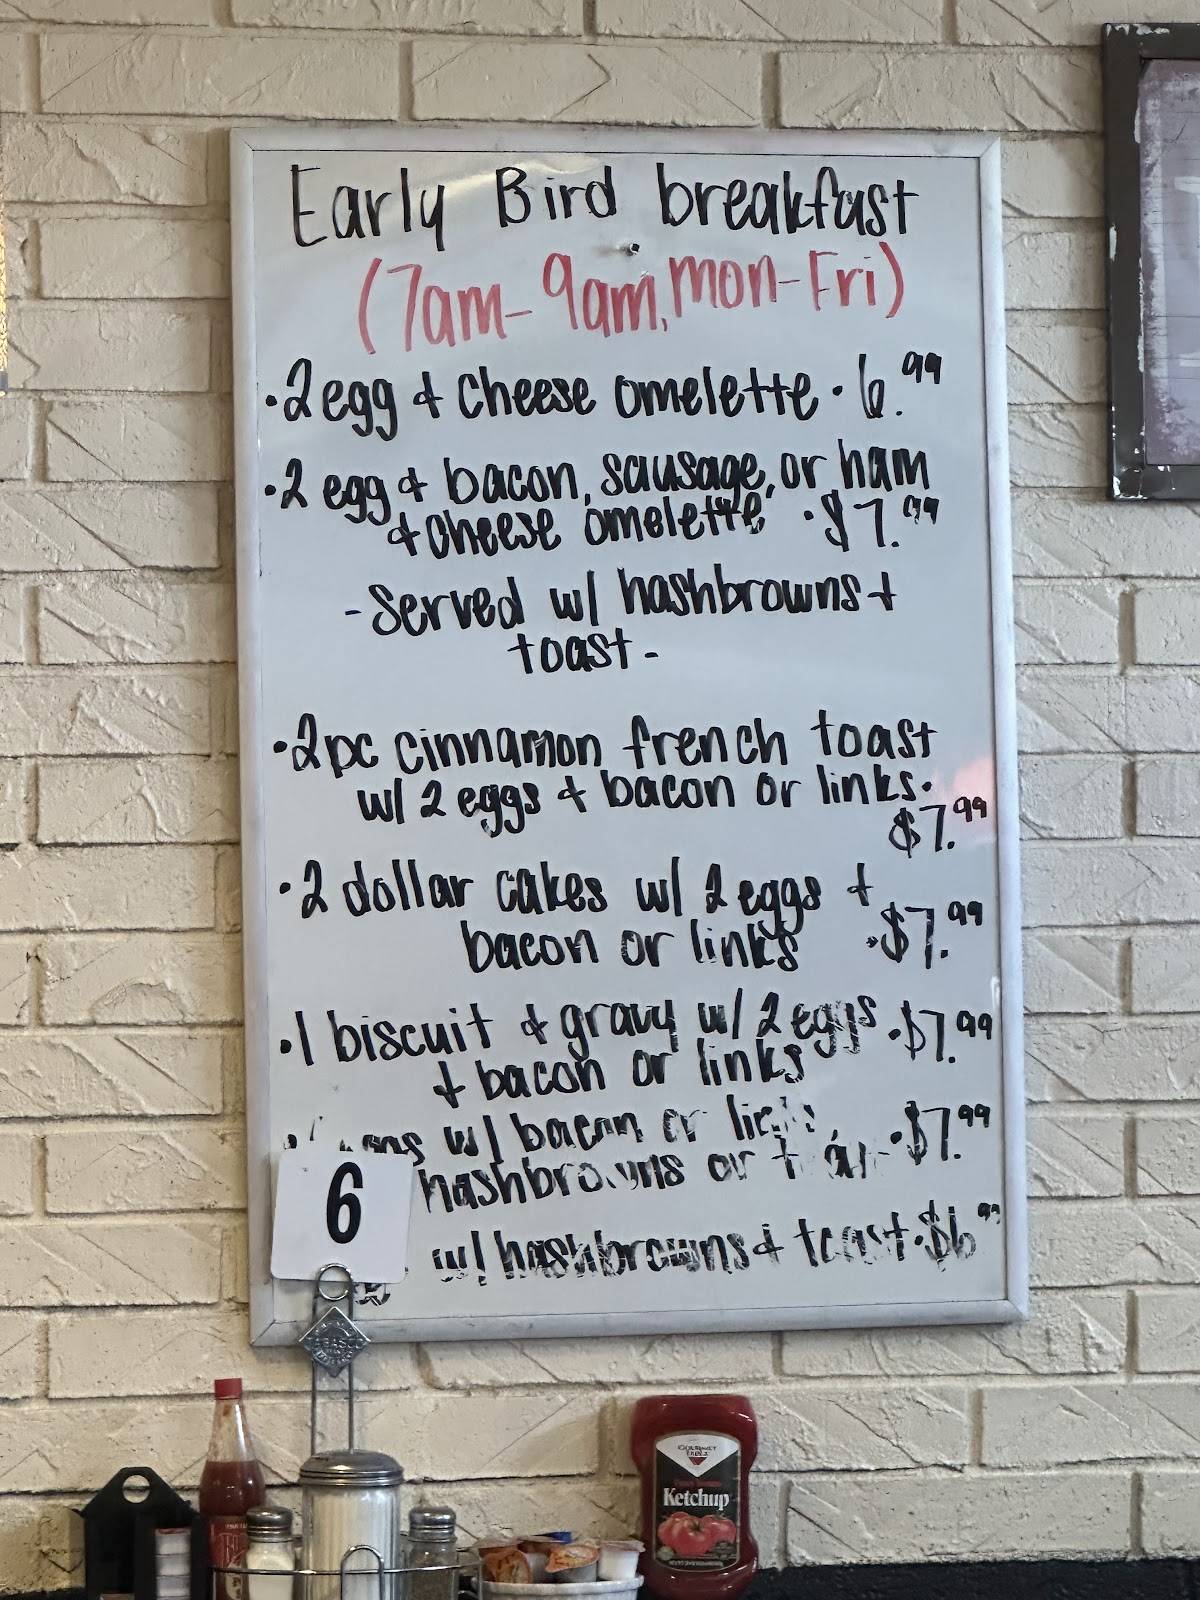 Early Bird breakfast
(7am-9am, Mon-Fri)
•2 egg & cheese omelette • 6.99
•2 egg & bacon, sausage, or ham
& cheese omelette •$7.99
- Served w/ hashbrowns &
toast -
•2pc cinnamon french toast
w/ 2 eggs & bacon or links •
$7.99
•2 dollar cakes w/ 2 eggs &
bacon or links •$7.99
•1 biscuit & gravy w/ 2 eggs •$7.99
& bacon or links
w/ bacon or links •$7.99
hashbrowns or
w/ hashbrowns & toast •$6.99
6
TABASCO
Ketchup